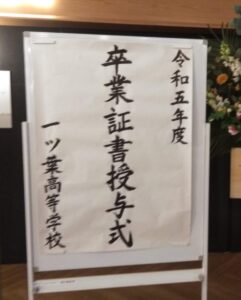 令和五年度
卒業証書授与式
一ツ葉高等学校